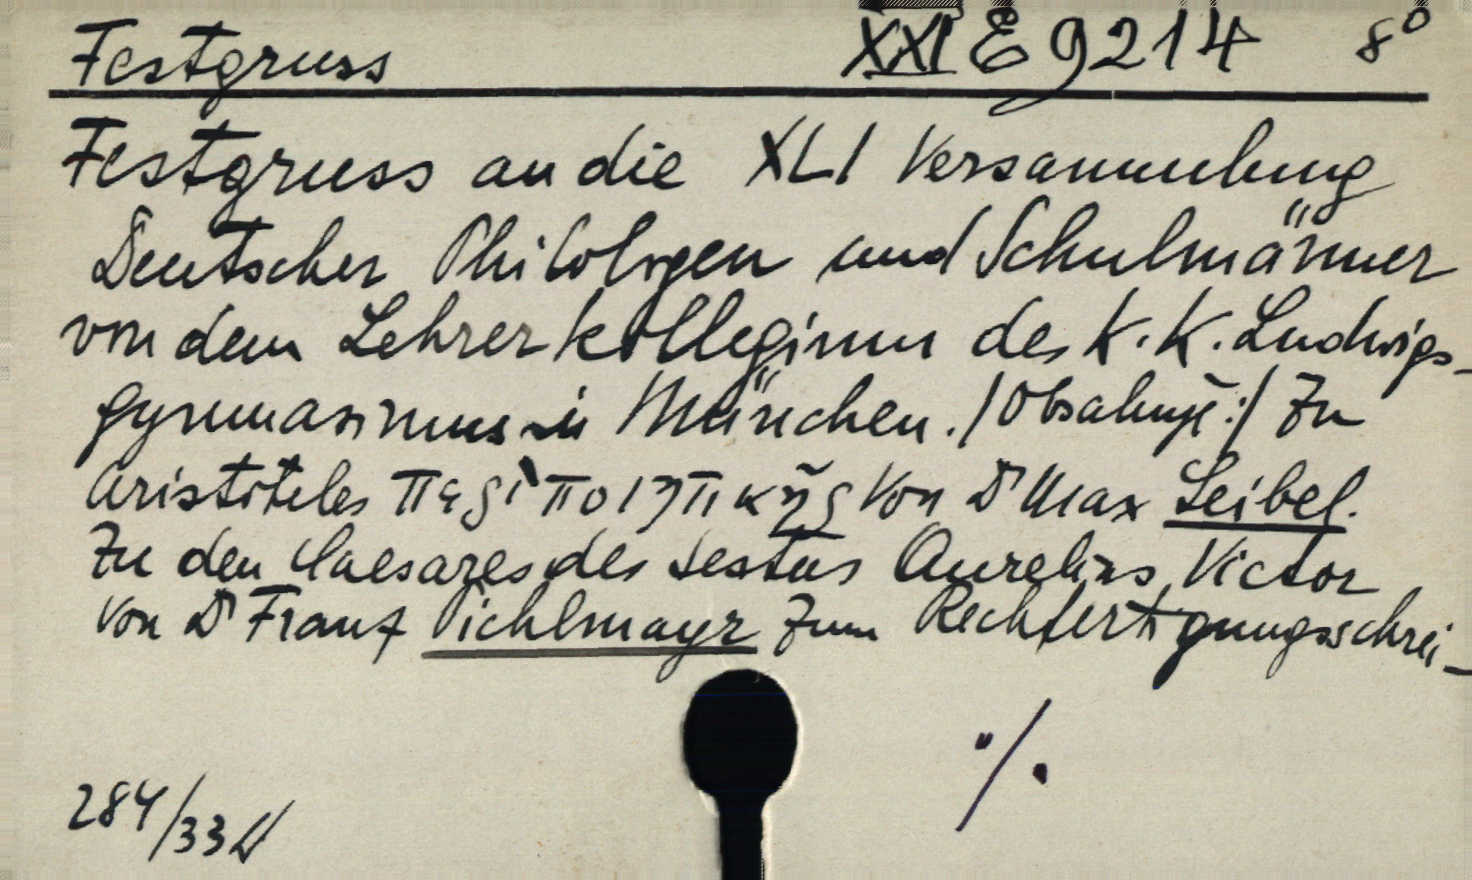 Festgruss XXI E 9214 8⁰
Festgruss an die XLI Versammlung
Deutscher Philologen und Schulmänner
von dem Lehrerkollegium des K. K. Ludwigs-
gymnasiums in München. /Obsahuje:/ Zu
Aristoteles περὶ ποιητικῆς Von Dr Max Seibel.
Zu den Caesares des Sextus Aurelius Victor
Von Dr Franz Pichlmayr Zum Rechtfertigungsschrei-
"/.
284/33